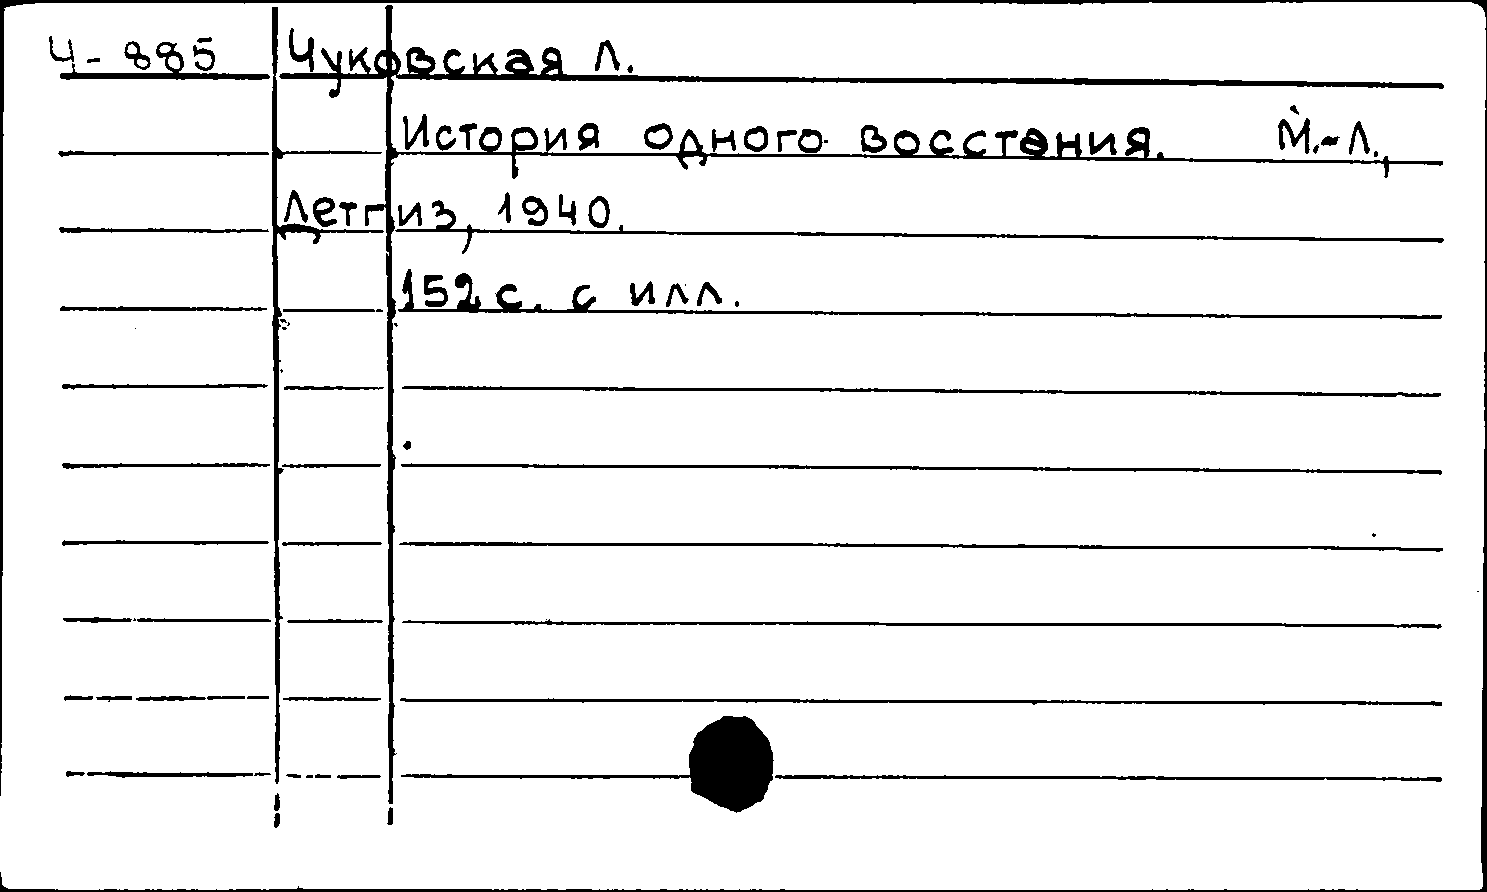 Ч-885 Чуковская Л.
История одного восстания. М.-Л.,
Детгиз, 1940.
152 с. с илл.